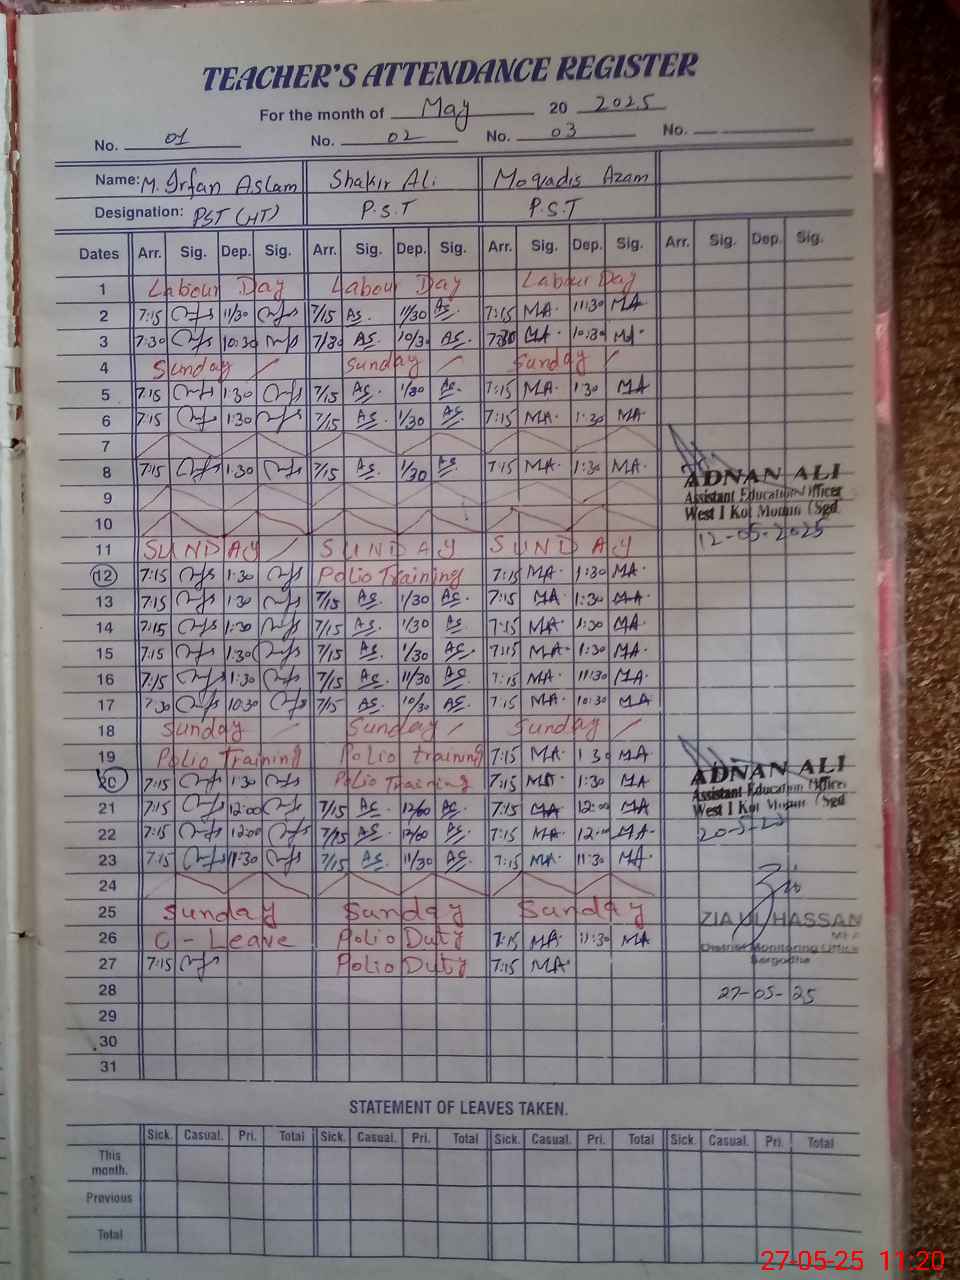 TEACHER'S ATTENDANCE REGISTER
For the month of May 20 2025
No. 01 No. 02 No. 03 No.
Name: M. Irfan Aslam Shakir Ali Moqadis Azam
Designation: PST (HT) P.S.T P.S.T
Dates Arr. Sig. Dep. Sig. Arr. Sig. Dep. Sig. Arr. Sig. Dep. Sig. Arr. Sig. Dep. Sig.
1 Labour Day Labour Day Labour Day
2 7:15 11/30 7/15 AS. 11/30 AS. 7:15 MA. 11:30 MA
3 7:30 10:30 7/30 AS. 10/30 AS. 7:30 MA. 10:30 MA.
4 Sunday Sunday Sunday
5 7:15 1:30 7/15 AS. 1/30 AS. 7:15 MA. 1:30 MA
6 7:15 1:30 7/15 AS. 1/30 AS. 7:15 MA. 1:30 MA.
7
8 7:15 1:30 7/15 AS. 1/30 AS. 7:15 MA. 1:30 MA.
ADNAN ALI
9
Assistant Education Officer
West I Kot Momin (Sgd
10
12-05-2025
11 SUNDAY SUNDAY SUNDAY
12 7:15 1:30 Polio Training 7:15 MA. 1:30 MA.
13 7:15 1:30 7/15 AS. 1/30 AS. 7:15 MA 1:30 MA.
14 7:15 1:30 7/15 AS. 1/30 AS. 7:15 MA. 1:30 MA.
15 7:15 1:30 7/15 AS. 1/30 AS. 7:15 MA. 1:30 MA.
16 7:15 1:30 7/15 AS. 11/30 AS. 7:15 MA. 11:30 MA.
17 7:30 10:30 7/15 AS. 10/30 AS. 7:15 MA. 10:30 MA
18 Sunday Sunday Sunday
19 Polio Training Polio training 7:15 MA. 1:30 MA
ADNAN ALI
20 7:15 1:30 Polio Training 7:15 MA. 1:30 MA
Assistant Education Officer
West I Kot Momin (Sgd
21 7:15 12:00 7/15 AS. 12/00 AS. 7:15 MA 12:00 MA
22 7:15 12:00 7/15 AS. 12/00 AS. 7:15 MA. 12:00 MA.
23 7:15 11:30 7/15 AS. 11/30 AS. 7:15 MA. 11:30 MA.
24
25 Sunday Sunday Sunday
ZIA UL HASSAN
26 C - Leave Polio Duty 7:15 MA. 11:30 MA
District Monitoring Office
Sargodha
27 7:15 Polio Duty 7:15 MA.
28
27-05-25
29
30
31
STATEMENT OF LEAVES TAKEN.
Sick. Casual. Pri. Total Sick. Casual. Pri. Total Sick. Casual. Pri. Total Sick. Casual. Pri. Total
This month.
Previous
Total
27-05-25 11:20